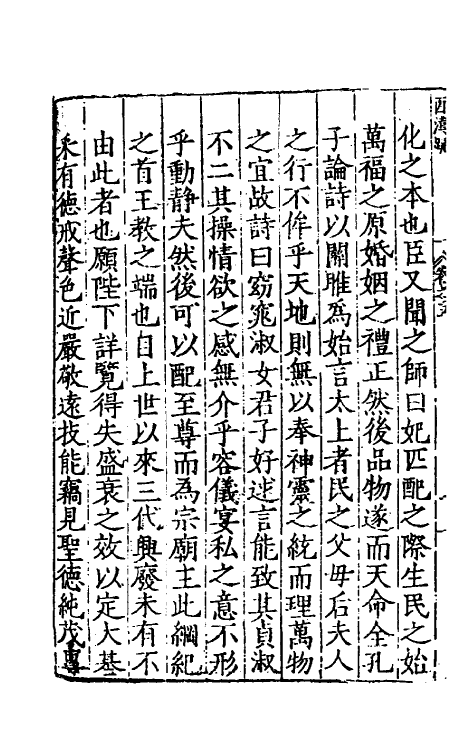 化之本也臣又聞之師曰妃匹配之際生民之始
萬福之原婚姻之禮正然後品物遂而天命全孔
子論詩以關雎爲始言太上者民之父母后夫人
之行不侔乎天地則無以奉神靈之統而理萬物
之宜故詩曰窈窕淑女君子好逑言能致其貞淑
不二其操情欲之感無介乎容儀宴私之意不形
乎動静夫然後可以配至尊而為宗廟主此綱紀
之首王教之端也自上世以來三代興廢未有不
由此者也願陛下詳覽得失盛衰之效以定大基
采有徳戒聲色近嚴敬遠技能竊見聖徳純茂專